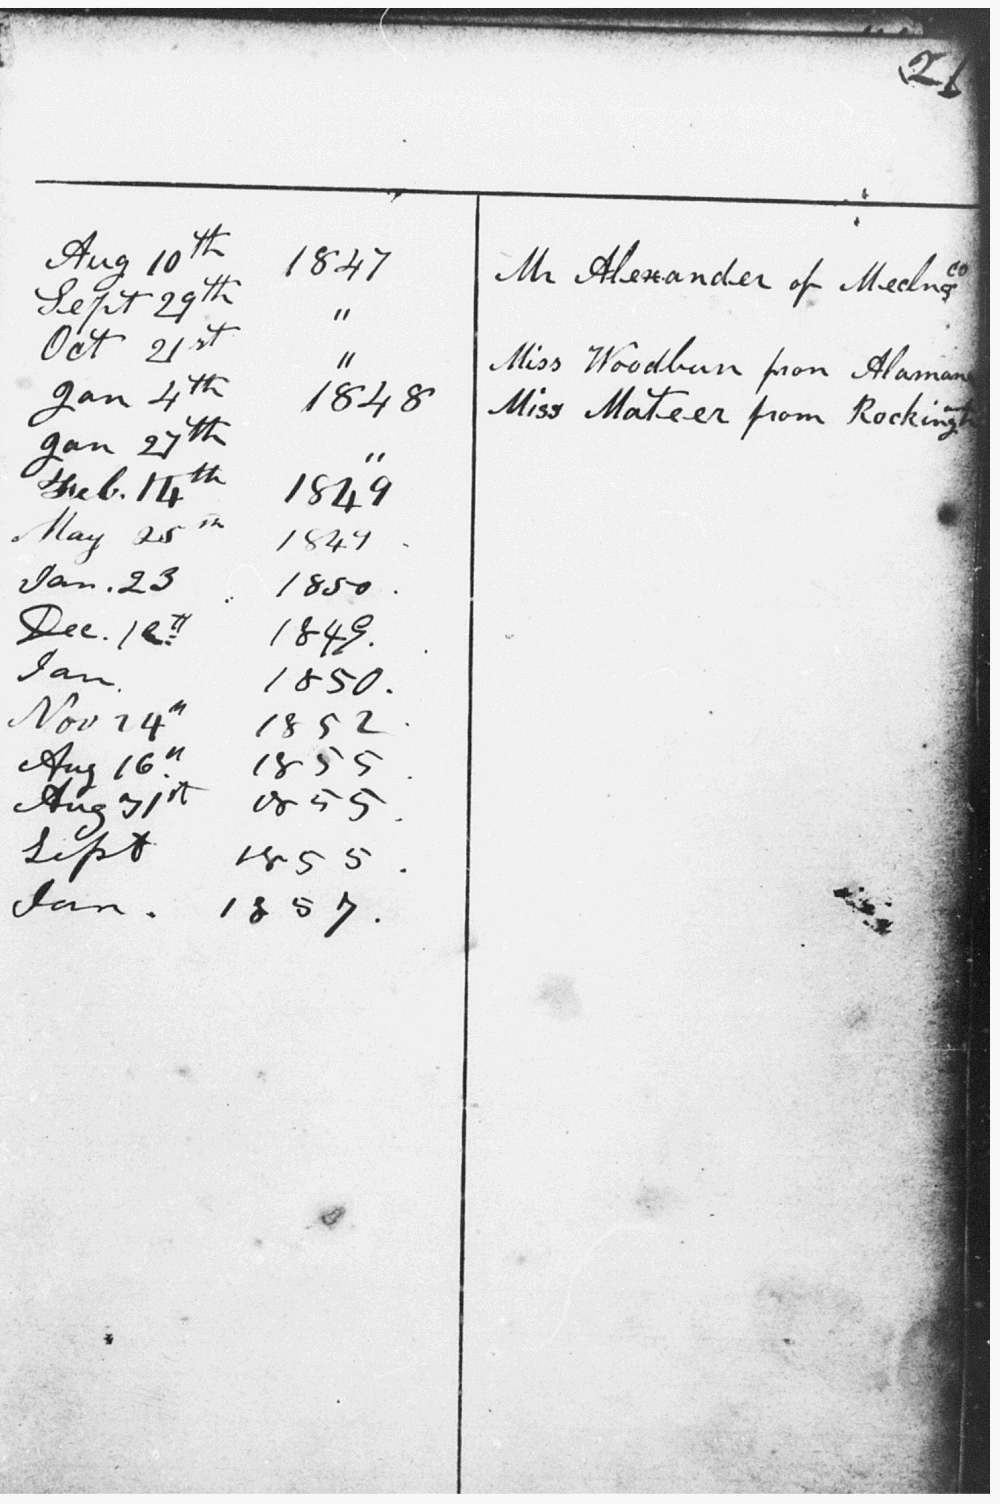 21
Aug 10th 1847 Mr Alexander of Meclng Co
Sept 29th "
Oct 21st " Miss Woodburn from Alamance
Jan 4th 1848 Miss Mateer from Rockingh
Jan 27th "
Feb. 14th 1849
May 25th 1849.
Jan. 23 1850.
Dec. 1849.
Jan. 1850.
Nov 14th 1852.
Aug 16th 1855.
Aug 31st 1855.
Sept 1855.
Jan. 1857.